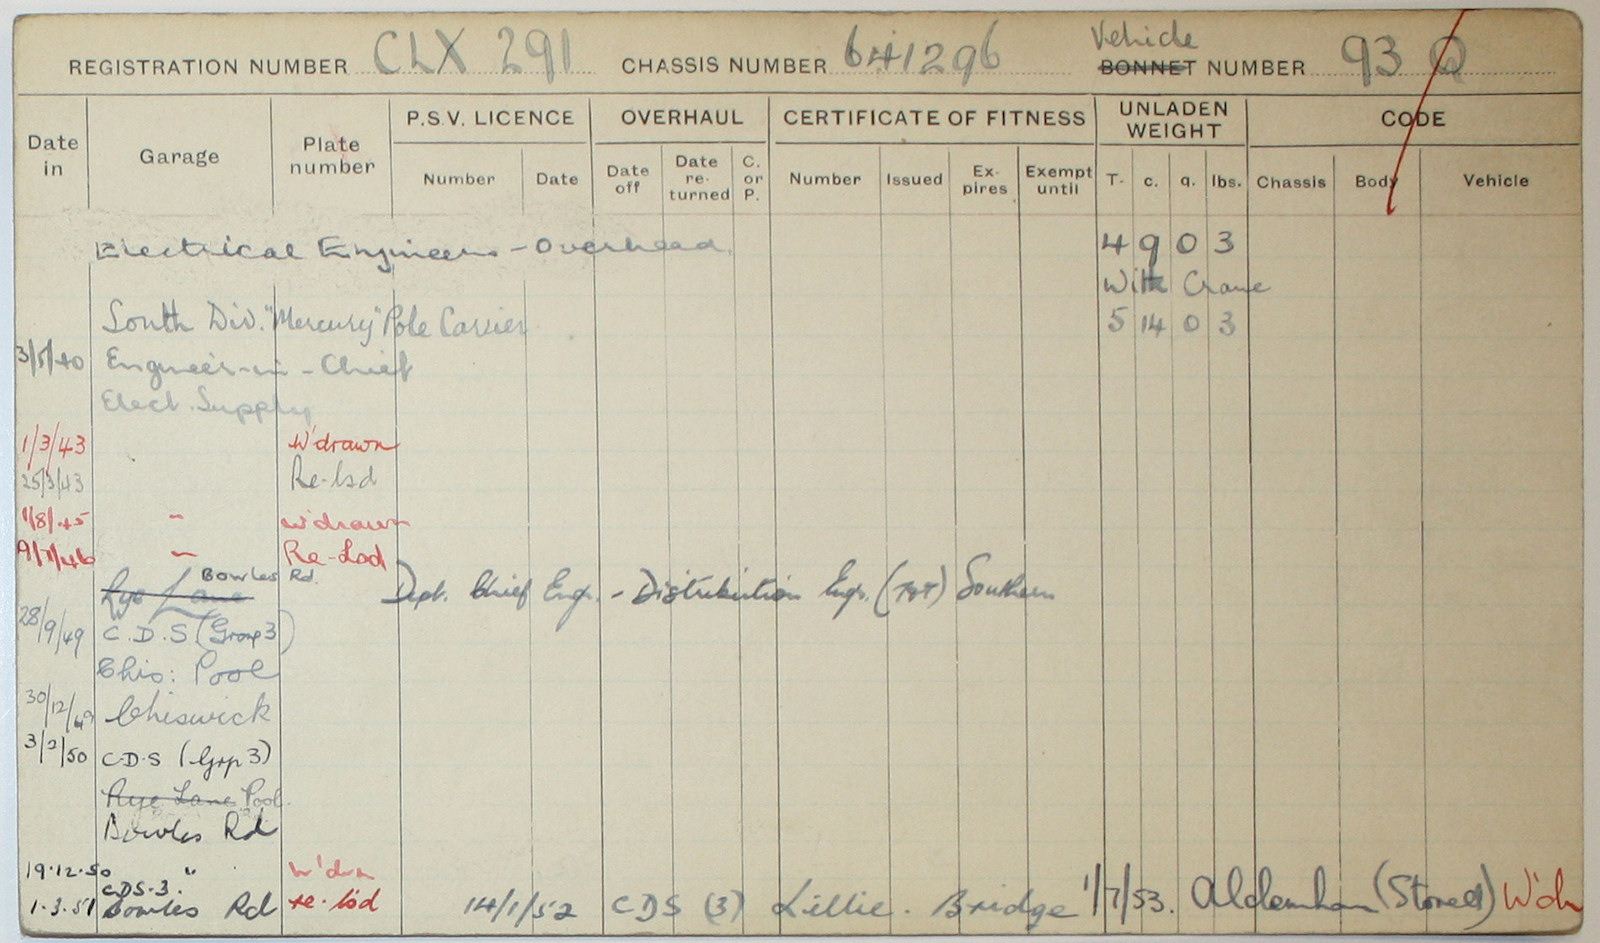 Vehicle
REGISTRATION NUMBER CLX 291 CHASSIS NUMBER 641296 BONNET NUMBER 93 Q
Date in Garage Plate number P.S.V. LICENCE OVERHAUL CERTIFICATE OF FITNESS UNLADEN WEIGHT CODE
Number Date Date off Date re-turned C. or P. Number Issued Ex-pires Exempt until T. c. q. lbs. Chassis Body Vehicle
Electrical Engineers - Overhead. 4 9 0 3
With Crane
South Div. "Mercury" Pole Carrier 5 14 0 3
3/5/40 Engineer-in-Chief
Elect. Supply
1/3/43 W'drawn
25/3/43 Re-lsd
1/8/45 " w'drawn
9/7/46 " Re-Lsd
Bowles Rd.
Rye Lane Dept. Chief Engr. - Distribution Engr. (TOT) Southern
28/9/49 C.D.S (Group 3)
Chis: Pool
30/12/49 Chiswick
3/2/50 C.D.S (Grp 3)
Rye Lane Pool.
Bowles Rd
19.12.50 " W'dn
CDS.3.
1.3.51 Bowles Rd re-lsd 14/1/52 CDS (3) Lillie. Bridge 1/7/53. Aldenham (Stored) W'dn